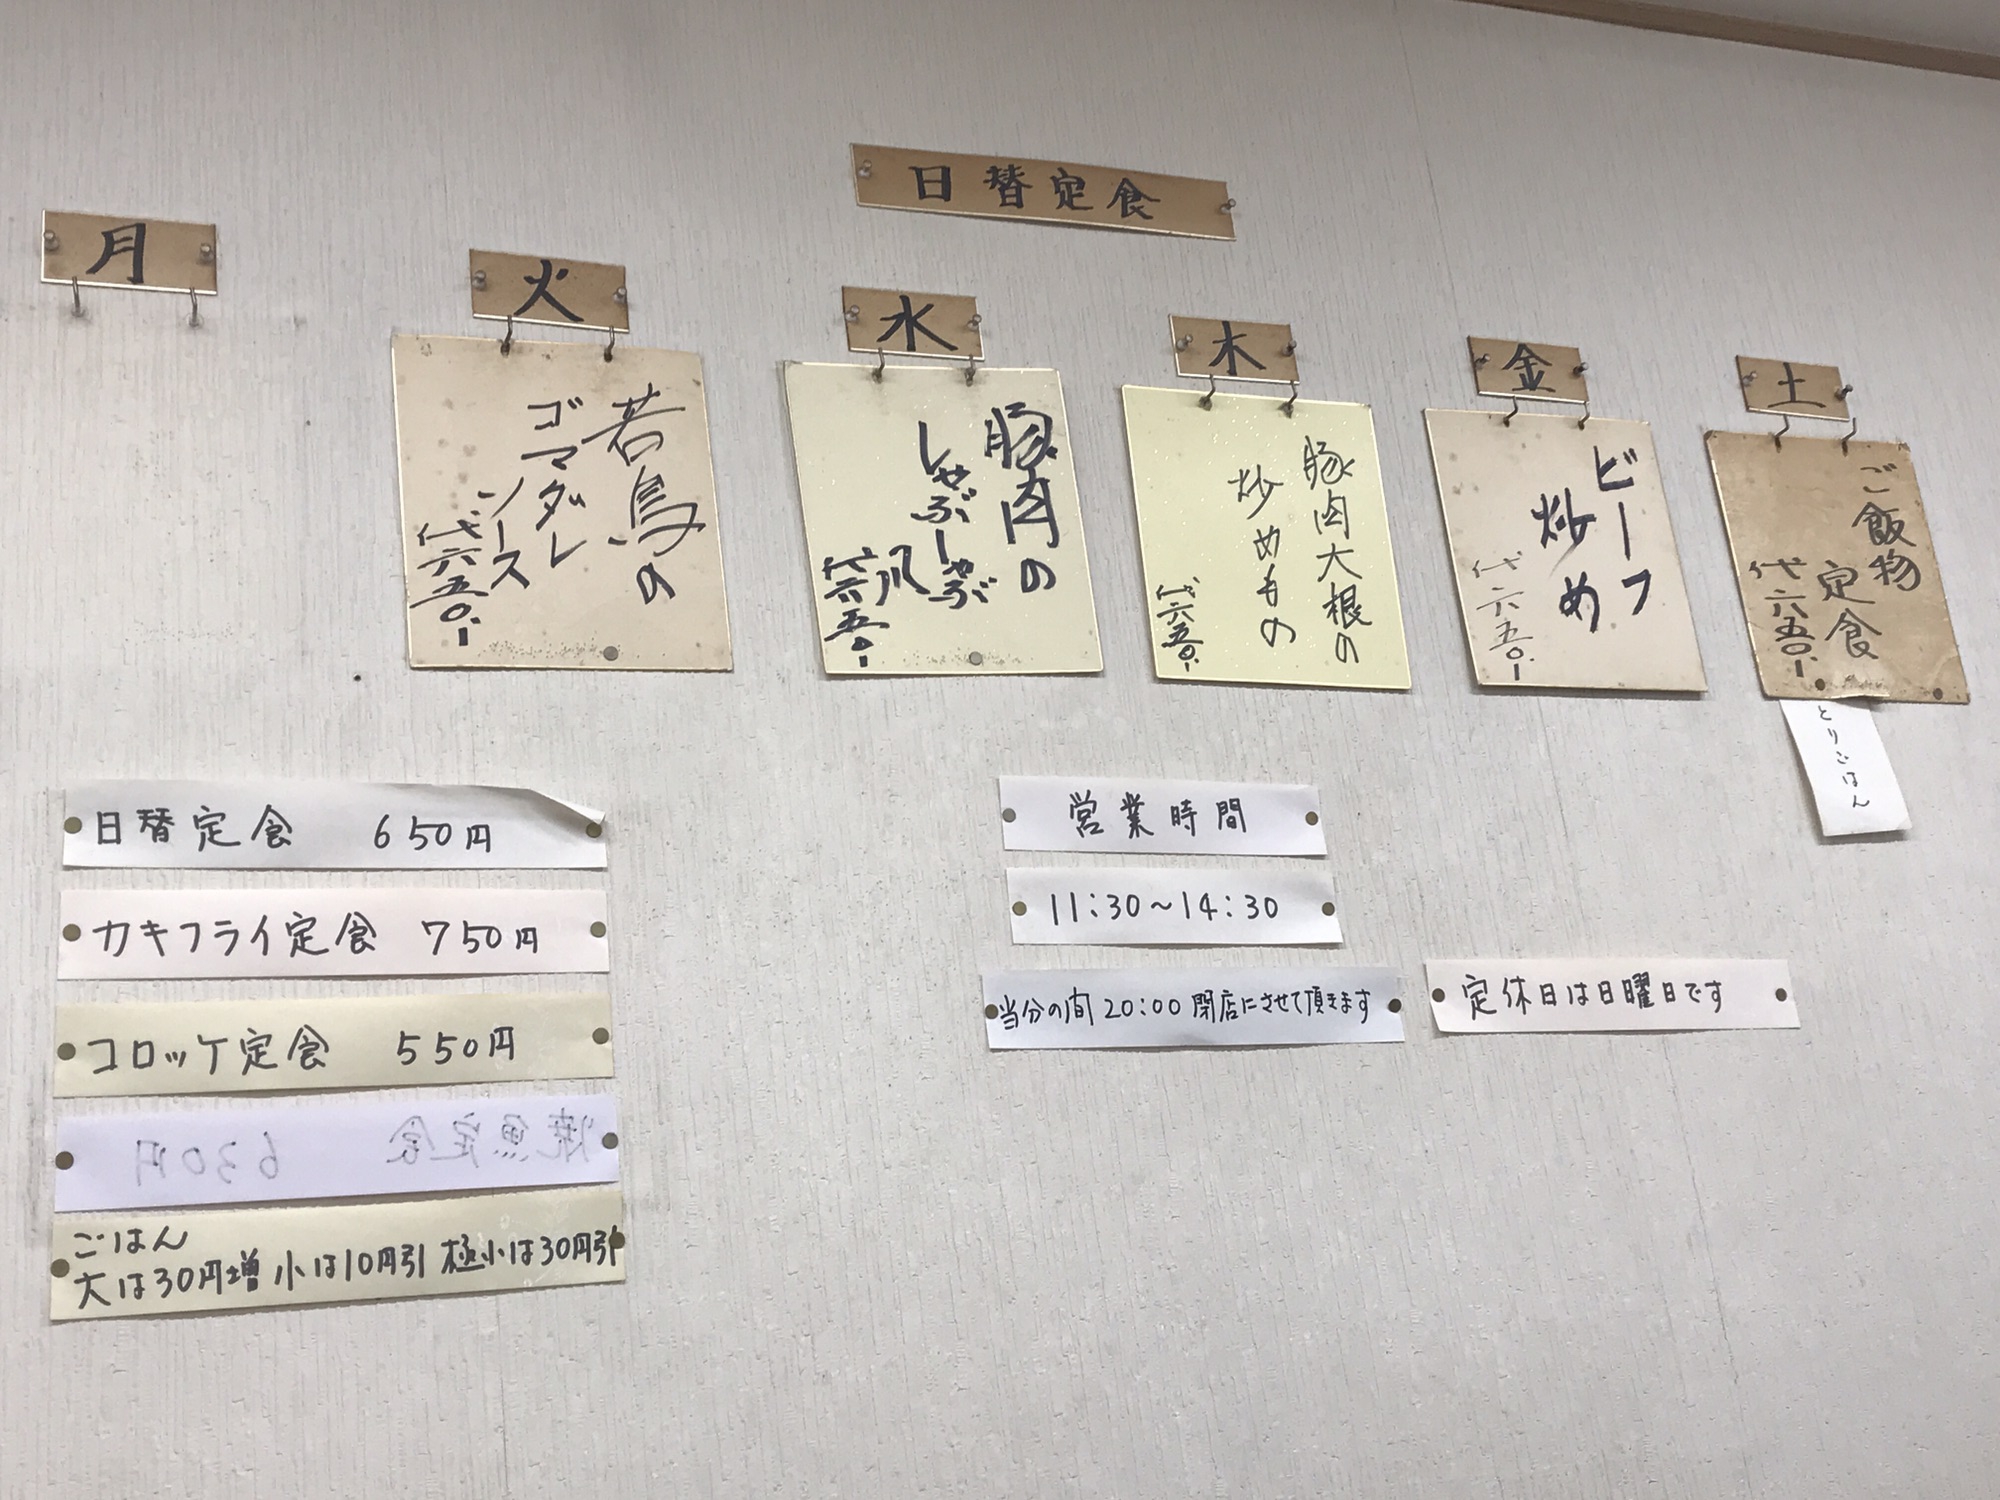 日替定食
月
火
若鳥の
ゴマダレ
ソース
代六五〇.-
水
豚肉の
しゃぶしゃぶ
風
代六五〇.-
木
豚肉大根の
炒めもの
代六五〇.-
金
ビーフ
炒め
代六五〇.-
土
ご飯物
定食
代六五〇.-
とりごはん
日替定食 650円
カキフライ定食 750円
コロッケ定食 550円
焼魚定食 630円
ごはん
大は30円増 小は10円引 極小は30円引
営業時間
11:30～14:30
当分の間 20:00 閉店にさせて頂きます
定休日は日曜日です